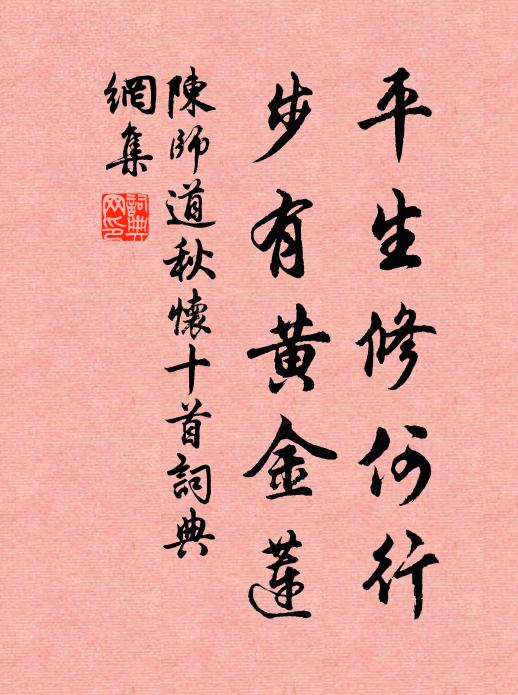 平生修何行
步有黄金蓮
陳師道秋懷十首詞典
網集
詞典
网印